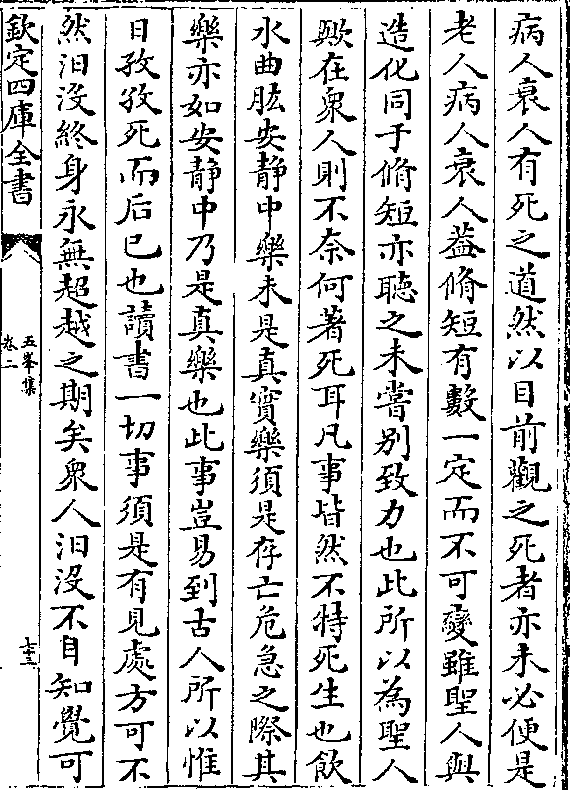 病人衰人有死之道然以目前觀之死者亦未必便是
老人病人衰人葢脩短有數一定而不可變雖聖人與
造化同于脩短亦聽之未嘗别致力也此所以為聖人
歟在衆人則不奈何著死耳凡事皆然不特死生也飲
水曲肱安静中樂未是真實樂須是存亡危急之際其
樂亦如安静中乃是真樂也此事豈易到古人所以惟
日孜孜死而后已也讀書一切事須是有見處方可不
然汨没終身永無超越之期矣衆人汨没不自知覺可
欽定四庫全書
五峯集
卷二
七十三